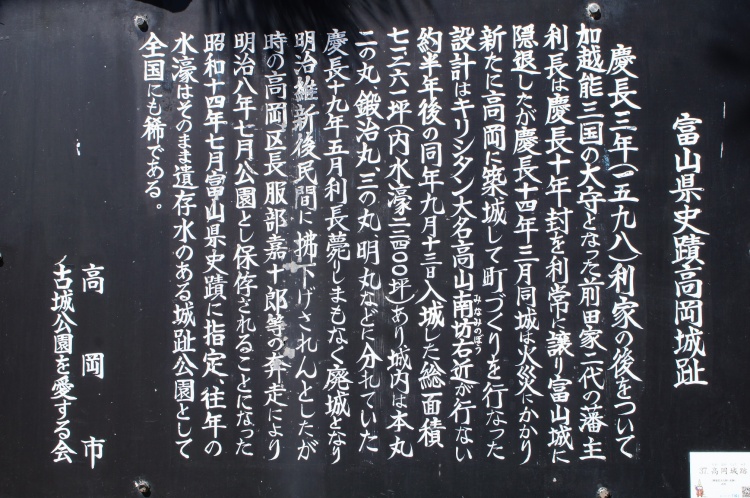 富山県史蹟高岡城趾
慶長三年(一五九八)利家の後をついで
加越能三国の大守となった前田家二代の藩主
利長は慶長十年封を利常に譲り富山城に
隠退したが慶長十四年三月同城は火災にかかり
新たに高岡に築城して町づくりを行なった
設計はキリシタン大名高山南坊右近が行ない
みなみのぼう
約半年後の同年九月十三日入城した総面積
坪(内水濠 坪)あり城内は本丸
二の丸 鍛治丸 三の丸 明丸などに分れていた
慶長十九年五月利長薨りまもなく廃城となり
明治維新後民間に拂下げされんとしたが
時の高岡区長服部嘉十郎等の奔走により
明治八年七月公園とし保存されることになった
昭和十四年七月富山県史蹟に指定、往年の
水濠はそのまま遺存水のある城趾公園として
全国にも稀である。
高岡市
古城公園を愛する会
高岡城跡